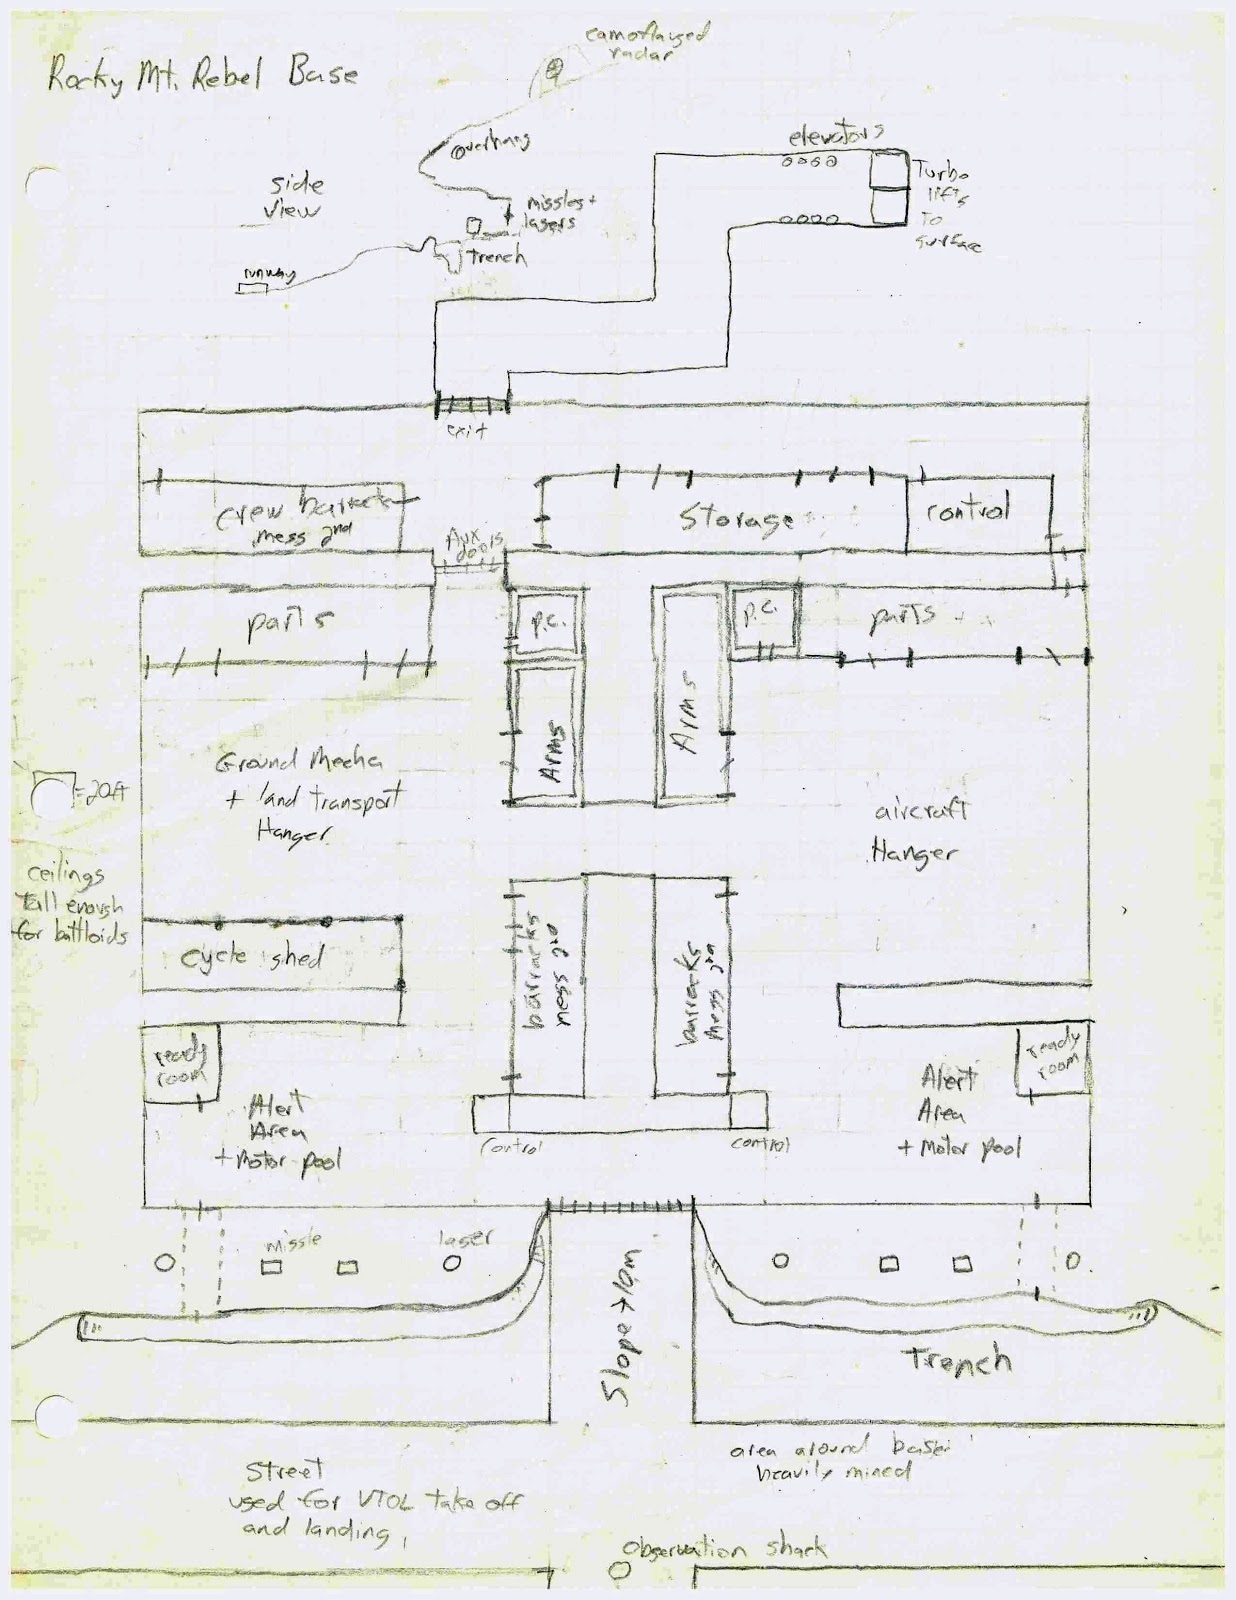 camoflauged
radar
Rocky Mt. Rebel Base
overhang
elevators
side
view
missles +
lasers
Turbo
lifts
to
surface
trench
runway
exit
crew barracks
mess 2nd
Storage
control
Aux
doors
parts
p.c.
p.c.
parts
Arms
Arms
Ground Mecha
+ land transport
Hanger
=20ft
aircraft
Hanger
ceilings
tall enough
for battloids
cycle shed
barracks
mess 2nd
barracks
mess 2nd
ready
room
ready
room
Alert
Area
+ Motor pool
Alert
Area
+ Motor pool
control
control
missle
laser
Slope >10m
Trench
area around base
heavily mined
Street
used for VTOL take off
and landing,
Observation shack